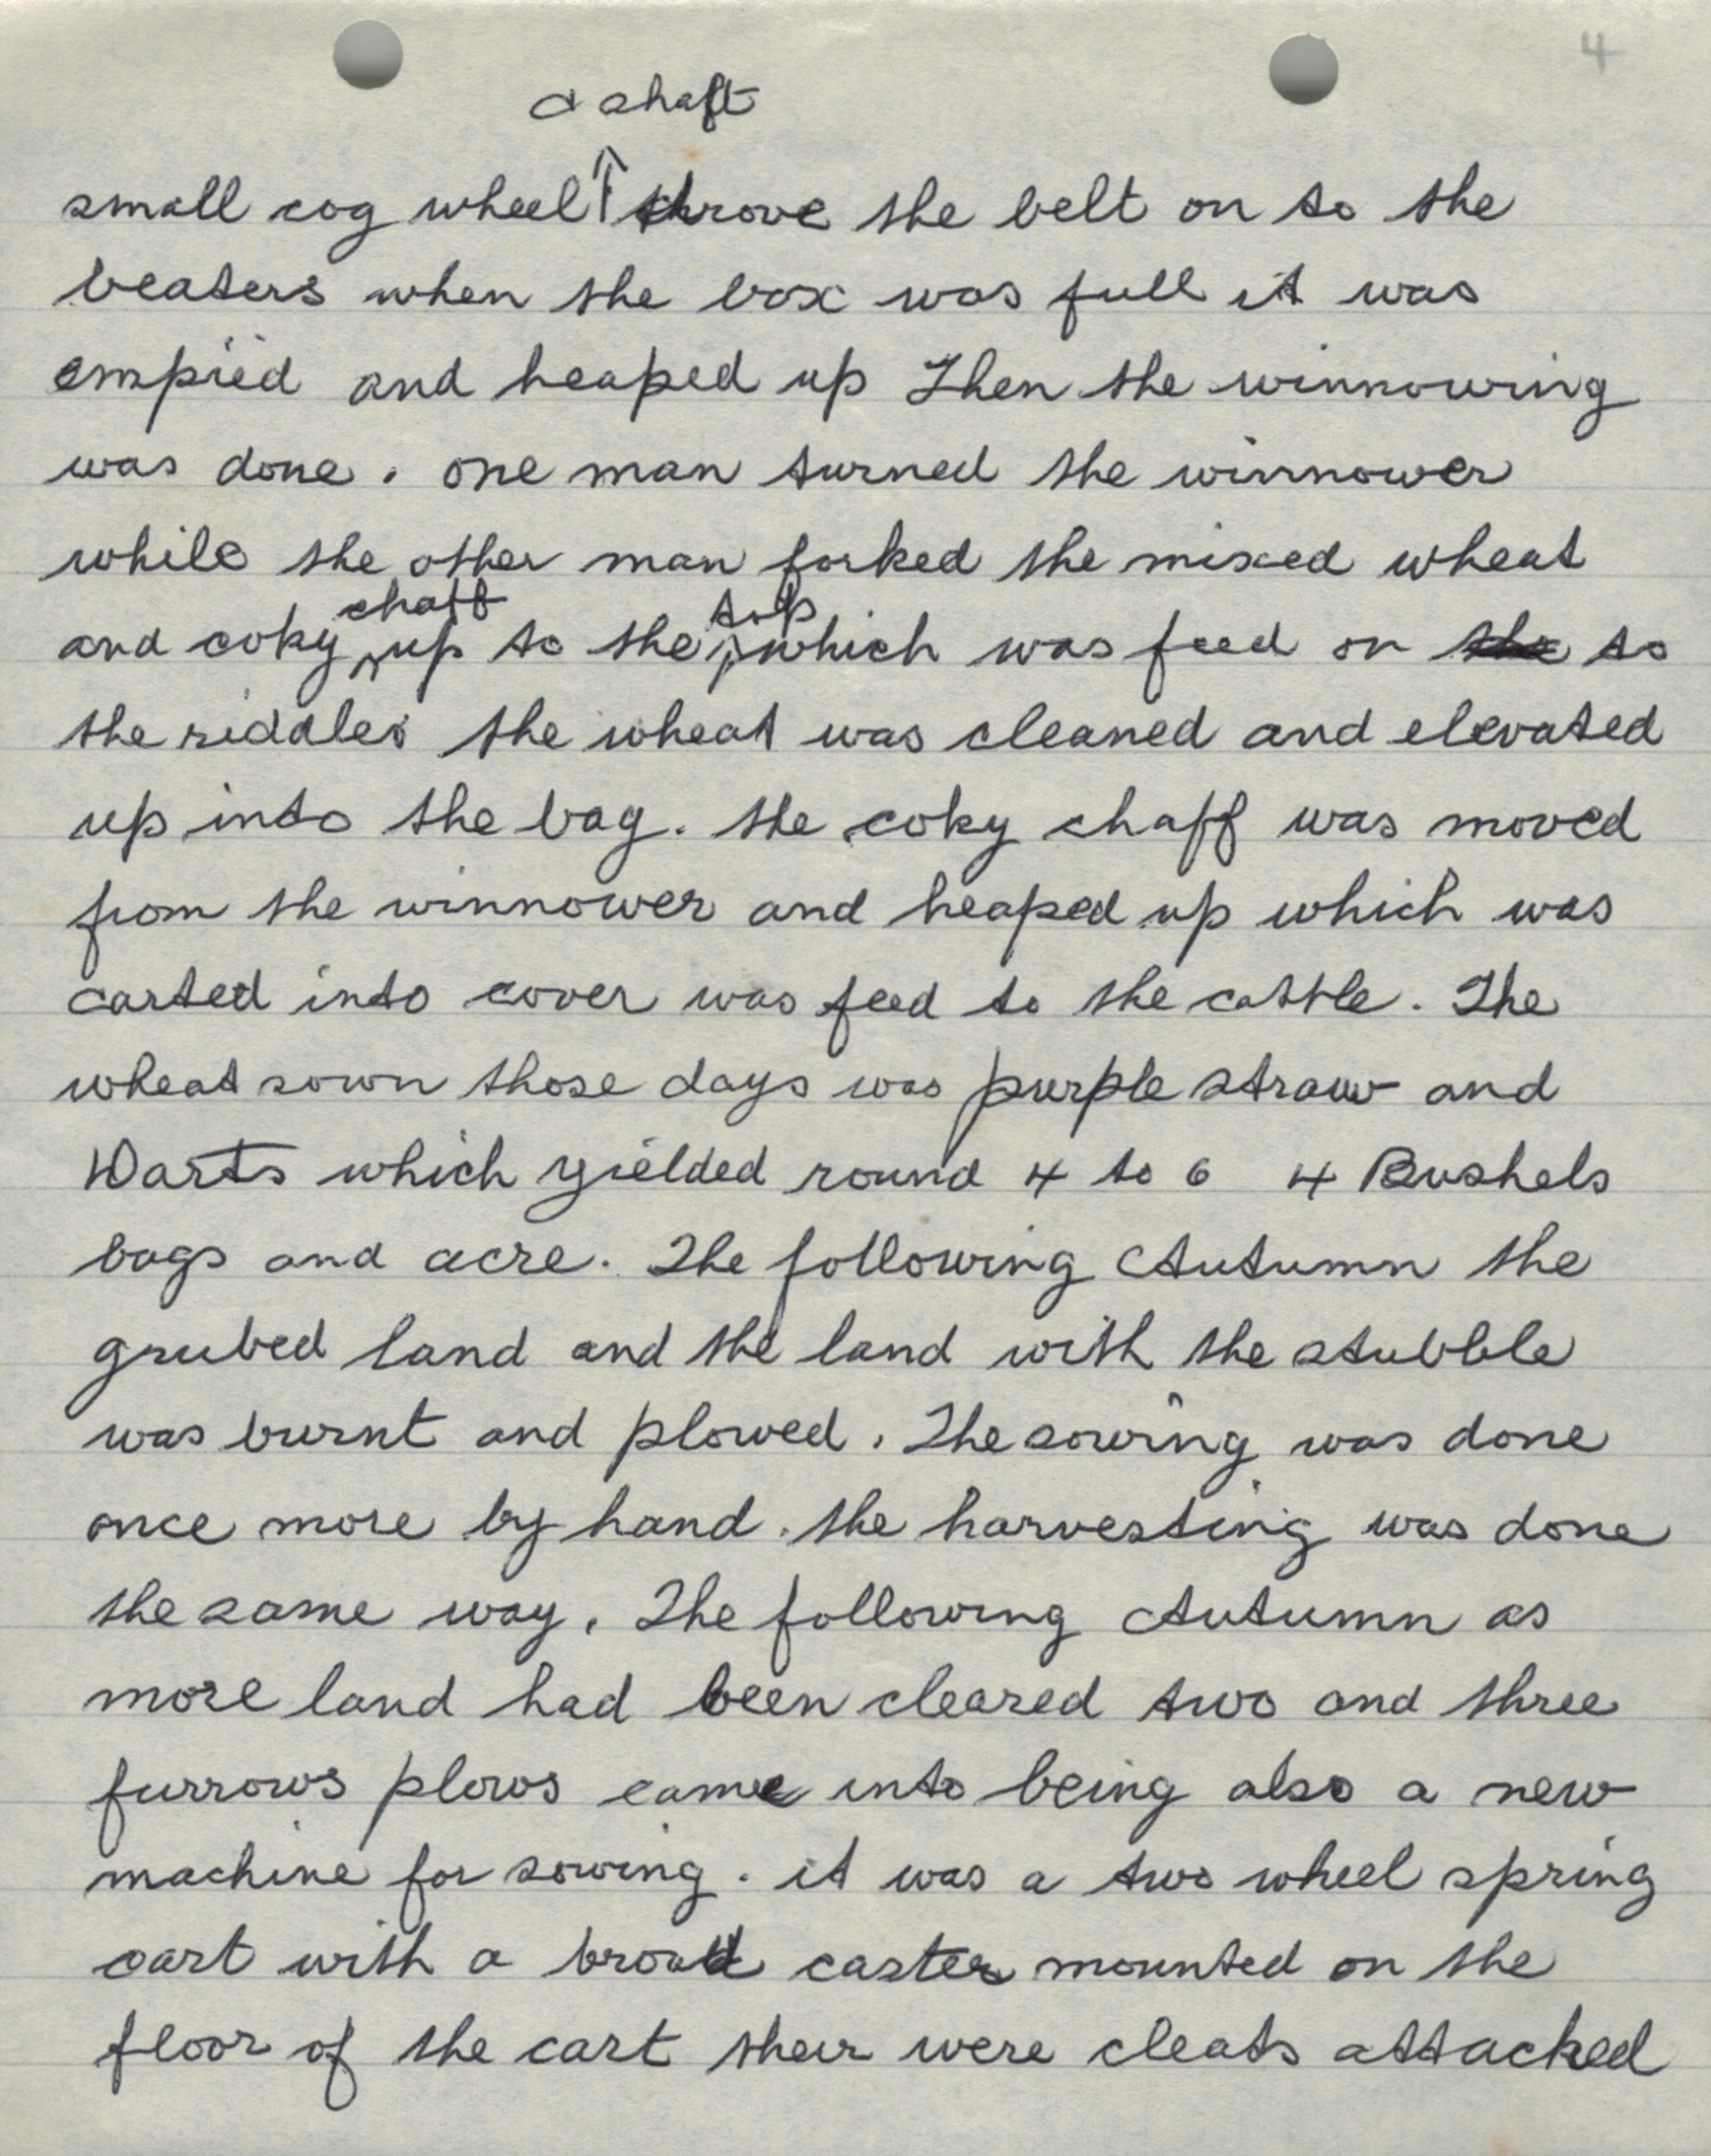 4
& shaft
small cog wheel throve the belt on to the
beaters when the box was full it was
empied and heaped up Then the winnowing
was done. one man turned the winnower
while the other man forked the mixed wheat
chaff top
and coky up to the which was feed on the to
the riddles the wheat was cleaned and elevated
up into the bag. the coky chaff was moved
from the winnower and heaped up which was
carted into cover was feed to the cattle. The
wheat sown those days was purple straw and
Warts which yielded round 4 to 6 4 Bushels
bags and acre. The following Autumn the
grubed land and the land with the stubble
was burnt and plowed. The sowing was done
once more by hand. the harvesting was done
the same way. The following Autumn as
more land had been cleared two and three
furrows plows came into being also a new
machine for sowing. it was a two wheel spring
cart with a broad caster mounted on the
floor of the cart their were cleats attacked